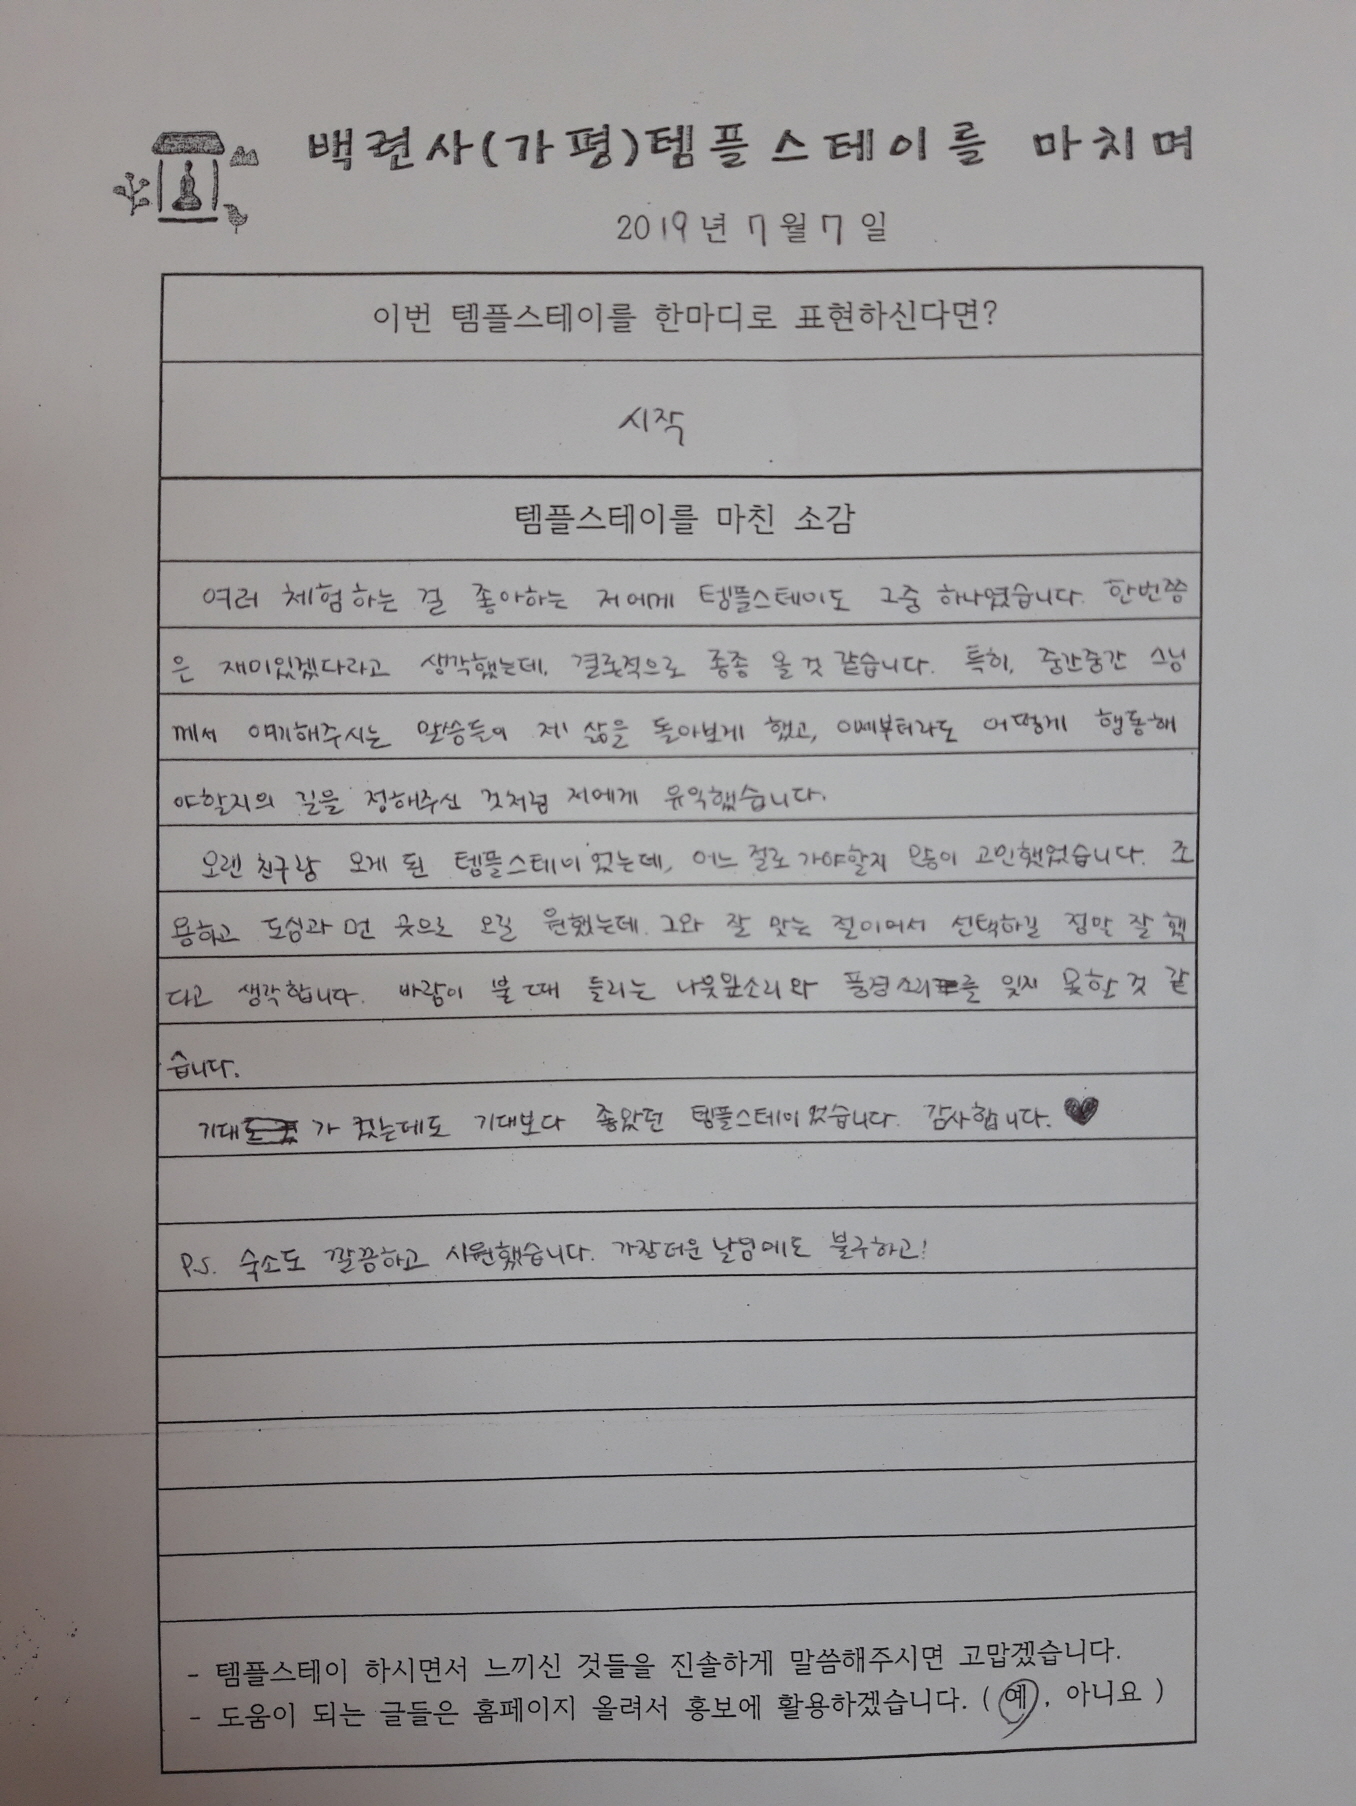 백련사(가평)템플스테이를 마치며
2019년 7월 7일
이번 템플스테이를 한마디로 표현하신다면?
시작
템플스테이를 마친 소감
여러 체험하는 걸 좋아하는 저에게 템플스테이도 그중 하나였습니다. 한번쯤
은 재미있겠다라고 생각했는데, 결론적으로 종종 올 것 같습니다. 특히, 중간중간 스님
께서 얘기해주시는 말씀들이 제 삶을 돌아보게 했고, 이제부터라도 어떻게 행동해
야할지의 길을 정해주신 것처럼 저에게 유익했습니다.
오랜 친구랑 오게 된 템플스테이였는데, 어느 절로 가야할지 많이 고민했었습니다. 조
용하고 도심과 먼 곳으로 오길 원했는데 그와 잘 맞는 절이어서 선택하길 정말 잘 했
다고 생각합니다. 바람이 불 때 들리는 나뭇잎소리와 풍경소리를 잊지 못할 것 같
습니다.
기대가 컸는데도 기대보다 좋았던 템플스테이였습니다. 감사합니다. ♥
P.S. 숙소도 깔끔하고 시원했습니다. 가장더운날임에도 불구하고!
- 템플스테이 하시면서 느끼신 것들을 진솔하게 말씀해주시면 고맙겠습니다.
- 도움이 되는 글들은 홈페이지 올려서 홍보에 활용하겠습니다. ( 예, 아니요 )